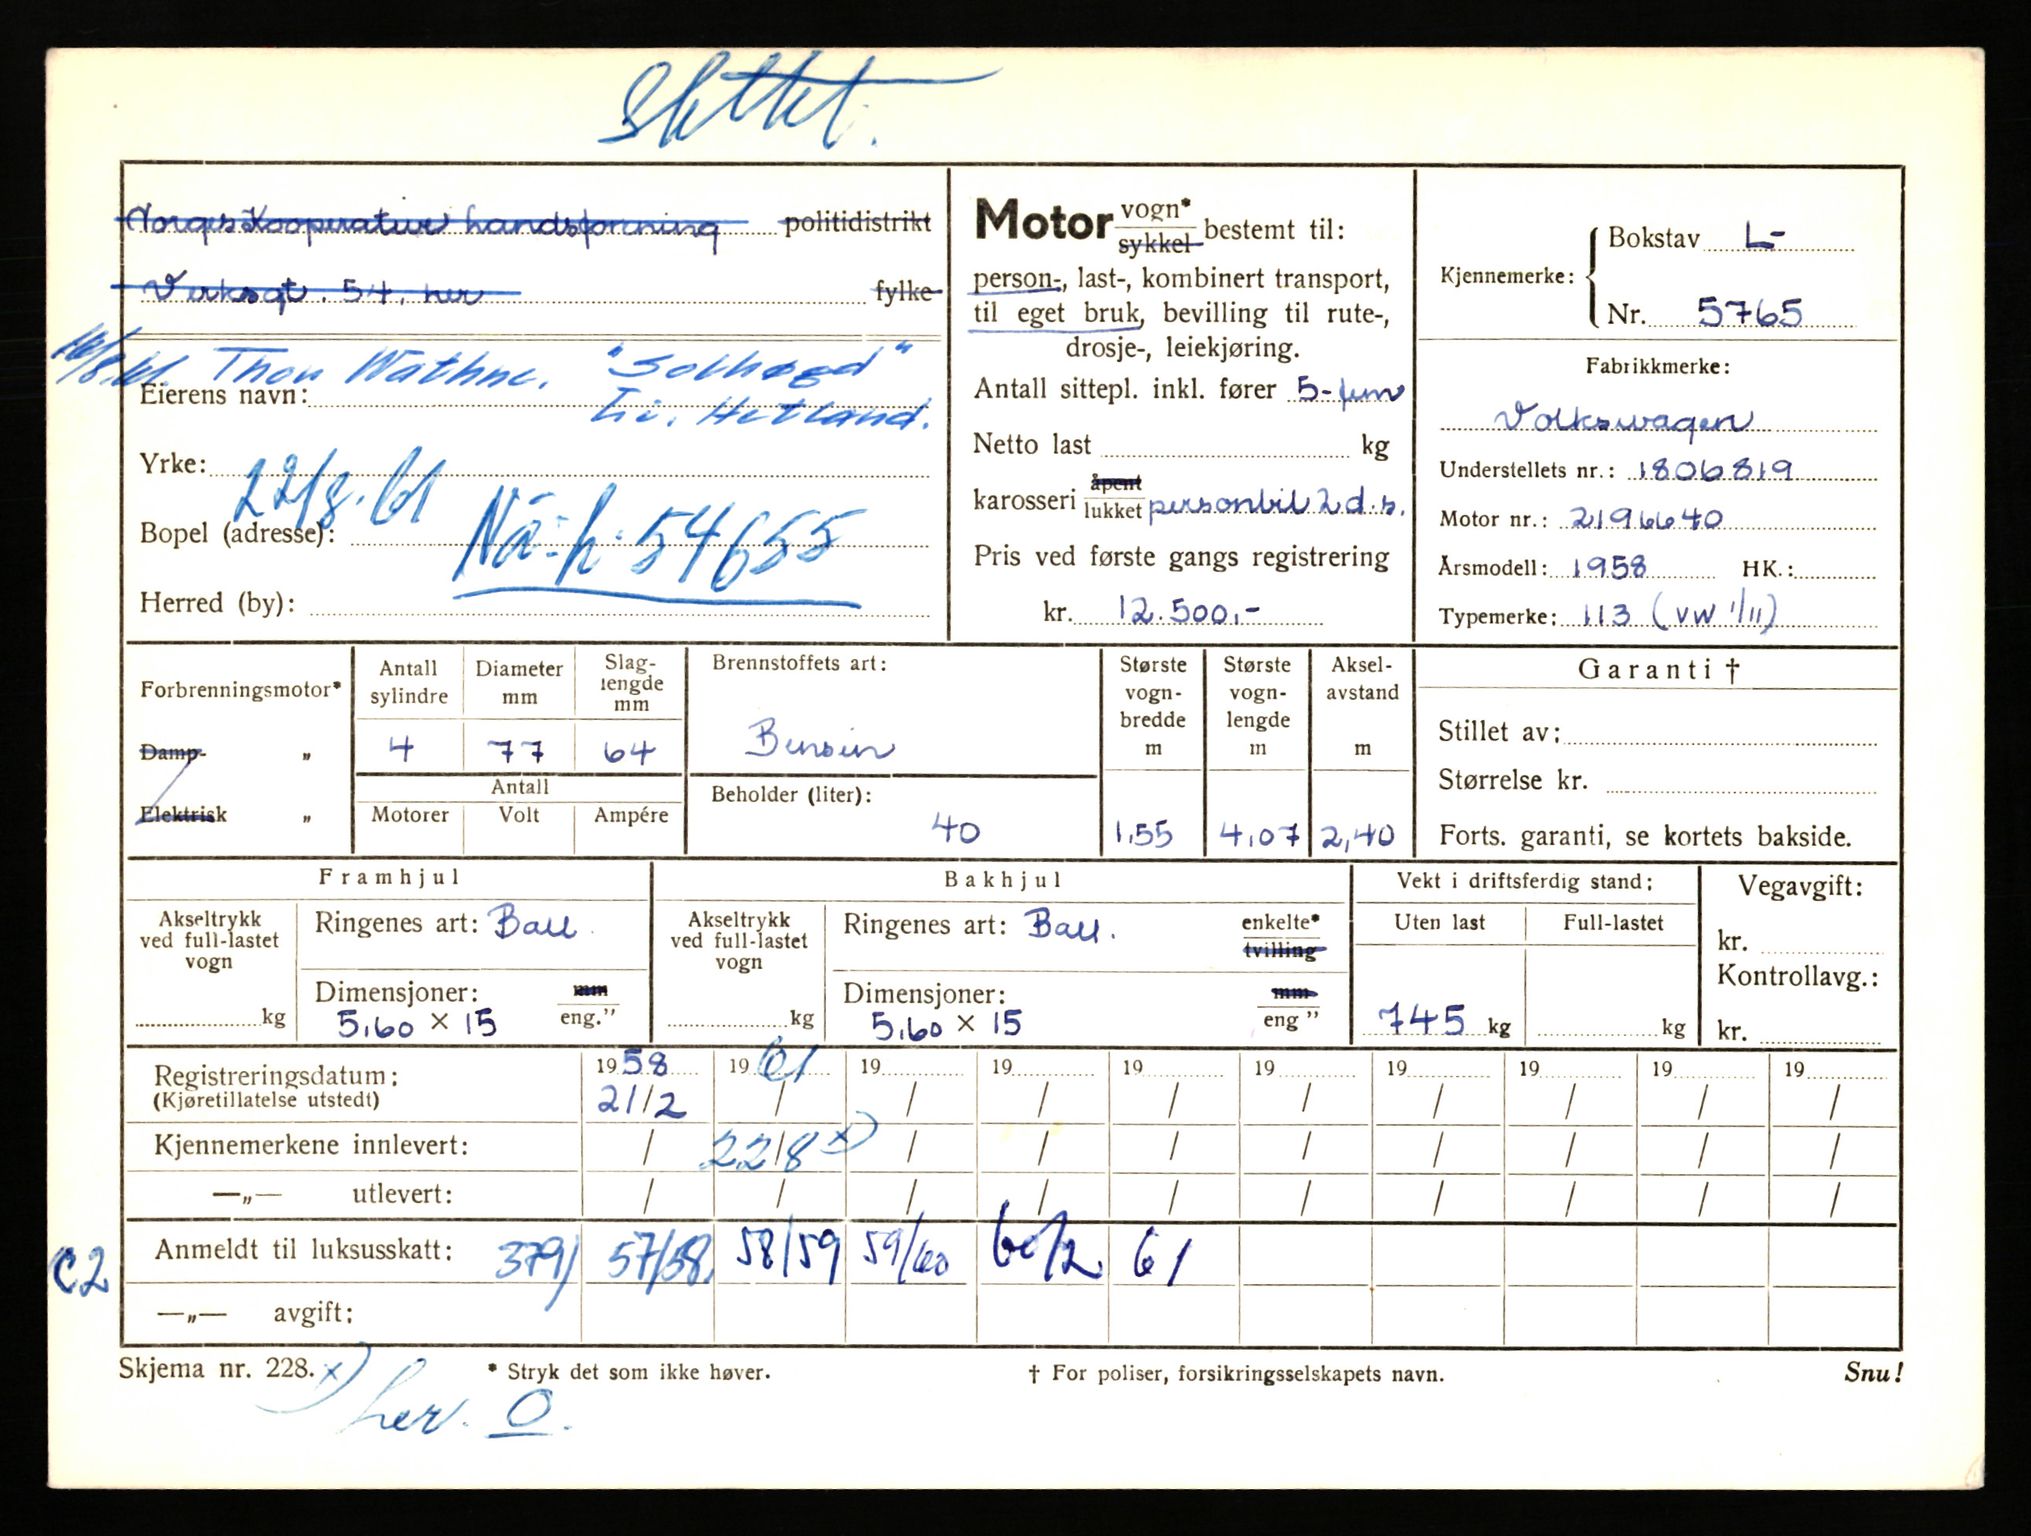 Slettet.
Norges Kooperative landsforening politidistrikt
Verksgt. 54, her fylke
16/8.61. Thor Wathne. "Solhøgd"
Eierens navn: Li. Hetland.
Yrke:
22/8.61
Bopel (adresse): Nå: h: 54655
Herred (by):
Motor vogn* sykkel bestemt til:
person-, last-, kombinert transport,
til eget bruk, bevilling til rute-,
drosje-, leiekjøring.
Antall sittepl. inkl. fører 5-fem
Netto last kg
karosseri åpent lukket personbil 2 d.s.
Pris ved første gangs registrering
kr. 12.500,-
Kjennemerke: Bokstav L-
Nr. 5765
Fabrikkmerke:
Volkswagen
Understellets nr.: 1806819
Motor nr.: 2196640
Årsmodell: 1958 HK.:
Typemerke: 113 (VW 1/11)
Forbrenningsmotor*
Damp- "
Elektrisk "
Antall sylindre Diameter mm Slag-lengde mm
4 77 64
Antall
Motorer Volt Ampére
Brennstoffets art:
Bensin
Beholder (liter):
40
Største vogn-bredde m
1,55
Største vogn-lengde m
4,07
Aksel-avstand m
2,40
Garanti †
Stillet av:
Størrelse kr.
Forts. garanti, se kortets bakside.
Framhjul
Akseltrykk ved full-lastet vogn
kg
Ringenes art: Ball.
Dimensjoner: mm
5,60 × 15 eng."
Bakhjul
Akseltrykk ved full-lastet vogn
kg
Ringenes art: Ball. enkelte* tvilling
Dimensjoner: mm
5,60 × 15 eng "
Vekt i driftsferdig stand:
Uten last Full-lastet
745 kg kg
Vegavgift:
kr.
Kontrollavg.:
kr.
Registreringsdatum: 1958 1961 19 19 19 19 19 19 19 19
(Kjøretillatelse utstedt) 21/2 / / / / / / / / /
Kjennemerkene innlevert: / 22/8 x) / / / / / / / /
—„— utlevert: / / / / / / / / / /
Anmeldt til luksusskatt: 3791 57/58. 58/59 59/60 60/2. 61
C2
—„— avgift:
Skjema nr. 228. * Stryk det som ikke høver. † For poliser, forsikringsselskapets navn. Snu!
x) her. O.